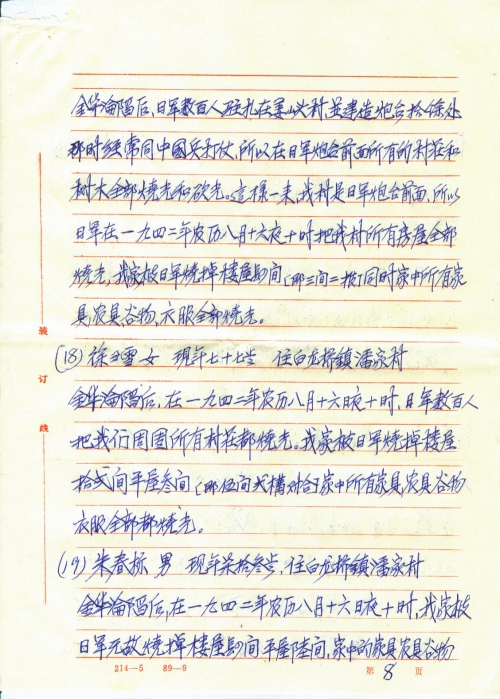 金华淪陷后,日军数百人驻扎在姜山头村並建造炮台拾余处
那时经常同中國兵打仗,所以在日军炮台前面所有的村莊和
树木全部燒光和砍光。这樣一来,我村是日军炮台前面,所以
日军在一九四二年农历八月十六夜十时把我村所有房屋全部
燒光,我家被日军燒掉楼屋 间(那三间二拨)同时家中所有家
具农具谷物、衣服全部燒光。
(18) 徐 雪 女 現年七十七岁 住白龙桥鎮潘家村
金华淪陷后,在一九四二年农历八月十六日夜十时,日军数百人
把我们周围所有村莊都燒光。我家被日军燒掉楼屋
拾弍间平屋叁间(那伍间弍橫对合)家中所有家具农具谷物
衣服全部都燒光。
(19) 朱春标 男 現年柒拾叁岁,住白龙桥鎮潘家村
金华淪陷后,在一九四二年农历八月十六日夜十时,我家被
日军无故燒掉楼屋 间平屋陸间,家中的家具农具谷物
装
订
线
214—5 89—9
第 8 页